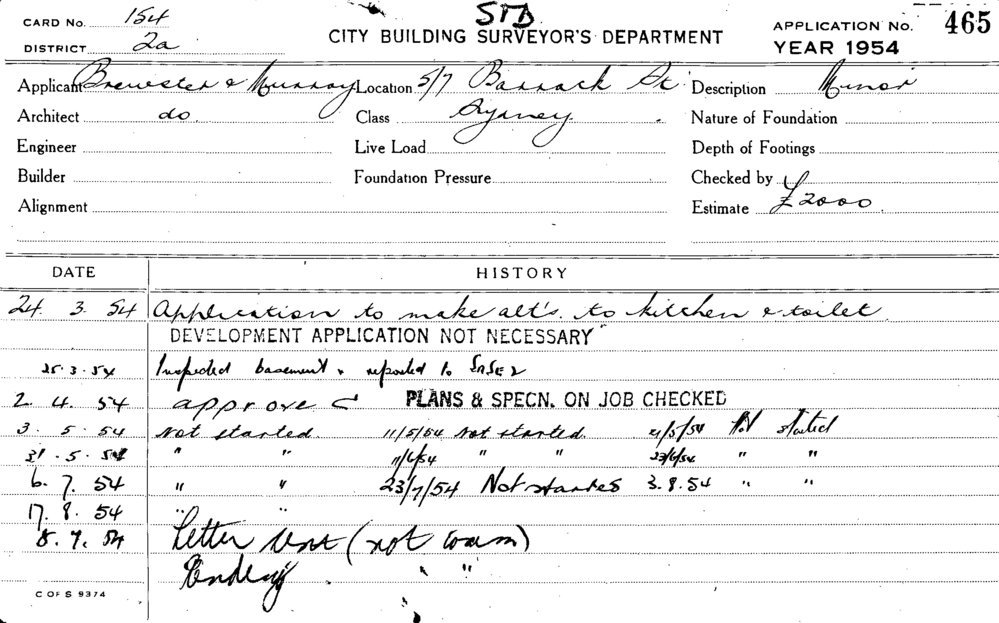 CARD No. 154 STD APPLICATION No. 465
DISTRICT 2a CITY BUILDING SURVEYOR'S DEPARTMENT YEAR 1954
Applicant Brewster & Murray Location 5/7 Barrack St. Description Minor
Architect do. Class Sydney Nature of Foundation
Engineer Live Load Depth of Footings
Builder Foundation Pressure Checked by
Alignment Estimate £2000.
DATE HISTORY
24. 3. 54 Application to make alt's. to kitchen & toilet.
DEVELOPMENT APPLICATION NOT NECESSARY
25.3.54 Inspected basement & reported to
2. 4. 54 approved PLANS & SPECN. ON JOB CHECKED
3. 5. 54 Not started. 11/5/54 Not started. 21/5/54 Not started
31. 5. 54 " " 11/6/54 " " 23/6/54 " "
6. 7. 54 " " 23/7/54 Not started 3.8.54 " "
17. 8. 54 " "
8. 9. 54 Letter sent (not comm)
Pending "
C OF S 9374